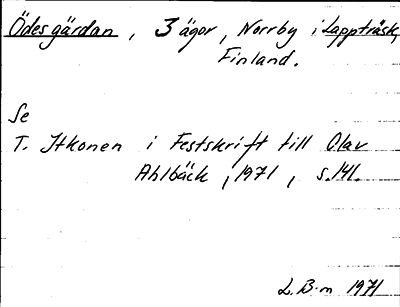 Ödesgärdan, 3 ägor, Norrby i Lappträsk,
Finland.
Se
T. Itkonen i Festskrift till Olav
Ahlbäck, 1971, s. 141.
L. B-m 1971